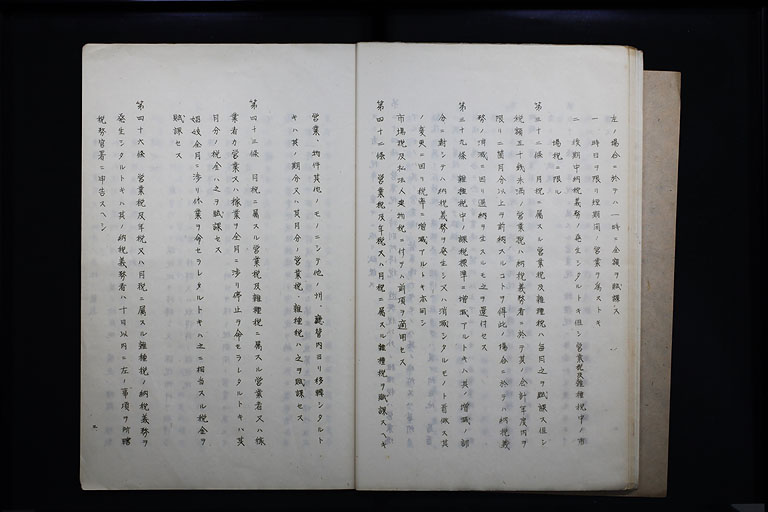 左ノ場合ニ於テハ一時ニ全額ヲ賦課ス
一 時日ヲ限リ短期間ノ営業ヲ為ストキ
二 後期中納税義務ノ発生シタルトキ但シ営業税及雑種税中ノ市
場税ニ限ル
第三十二條 月税ニ属スル営業税及雑種税ハ毎月之ヲ賦課ス但シ
税額五十銭未満ノ営業税ハ納税義務者ニ於テ其ノ会計年度内ヲ
限リ二箇月分以上ヲ前納スルコトヲ得此ノ場合ニ於テハ納税義
務ノ消滅ニ因リ過納ヲ生スルモ之ヲ還付セス
第三十九條 雑種税中ノ課税標準ニ増減アルトキハ其ノ増減ノ部
分ニ対シテハ納税義務ヲ発生シ又ハ消滅シタルモノト看做ス其
ノ変更ニ因リ税率ニ増減アルトキ亦同シ
市場税及私法人建物税ニ付テハ前項ヲ適用セス
第四十二條 営業税及年税又ハ月税ニ属スル雑種税ヲ賦課スヘキ
営業、物件其他ノモノニシテ他ノ州、廳管内ヨリ移轉シタルト
キハ其ノ期分又ハ其月分ノ営業税、雑種税ハ之ヲ賦課セス
第四十三條 月税ニ属スル営業税及雑種税ニ属スル営業者又ハ稼
業者カ営業又ハ稼業ヲ全月ニ渉リ停止ヲ命セラレタルトキハ其
月分ノ税金ハ之ヲ賦課セス
娼妓全月ニ渉リ休業ヲ命セラレタルトキハ之ニ相当スル税金ヲ
賦課セス
第四十六條 営業税及年税又ハ月税ニ属スル雑種税ノ納税義務ヲ
発生シタルトキハ其ノ納税義務者ハ十日以内ニ左ノ事項ヲ所轄
税務官署ニ申告スヘシ